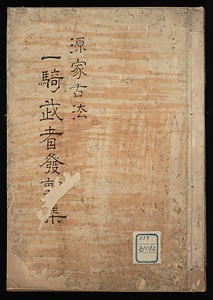 源家古法
一騎武者發
集